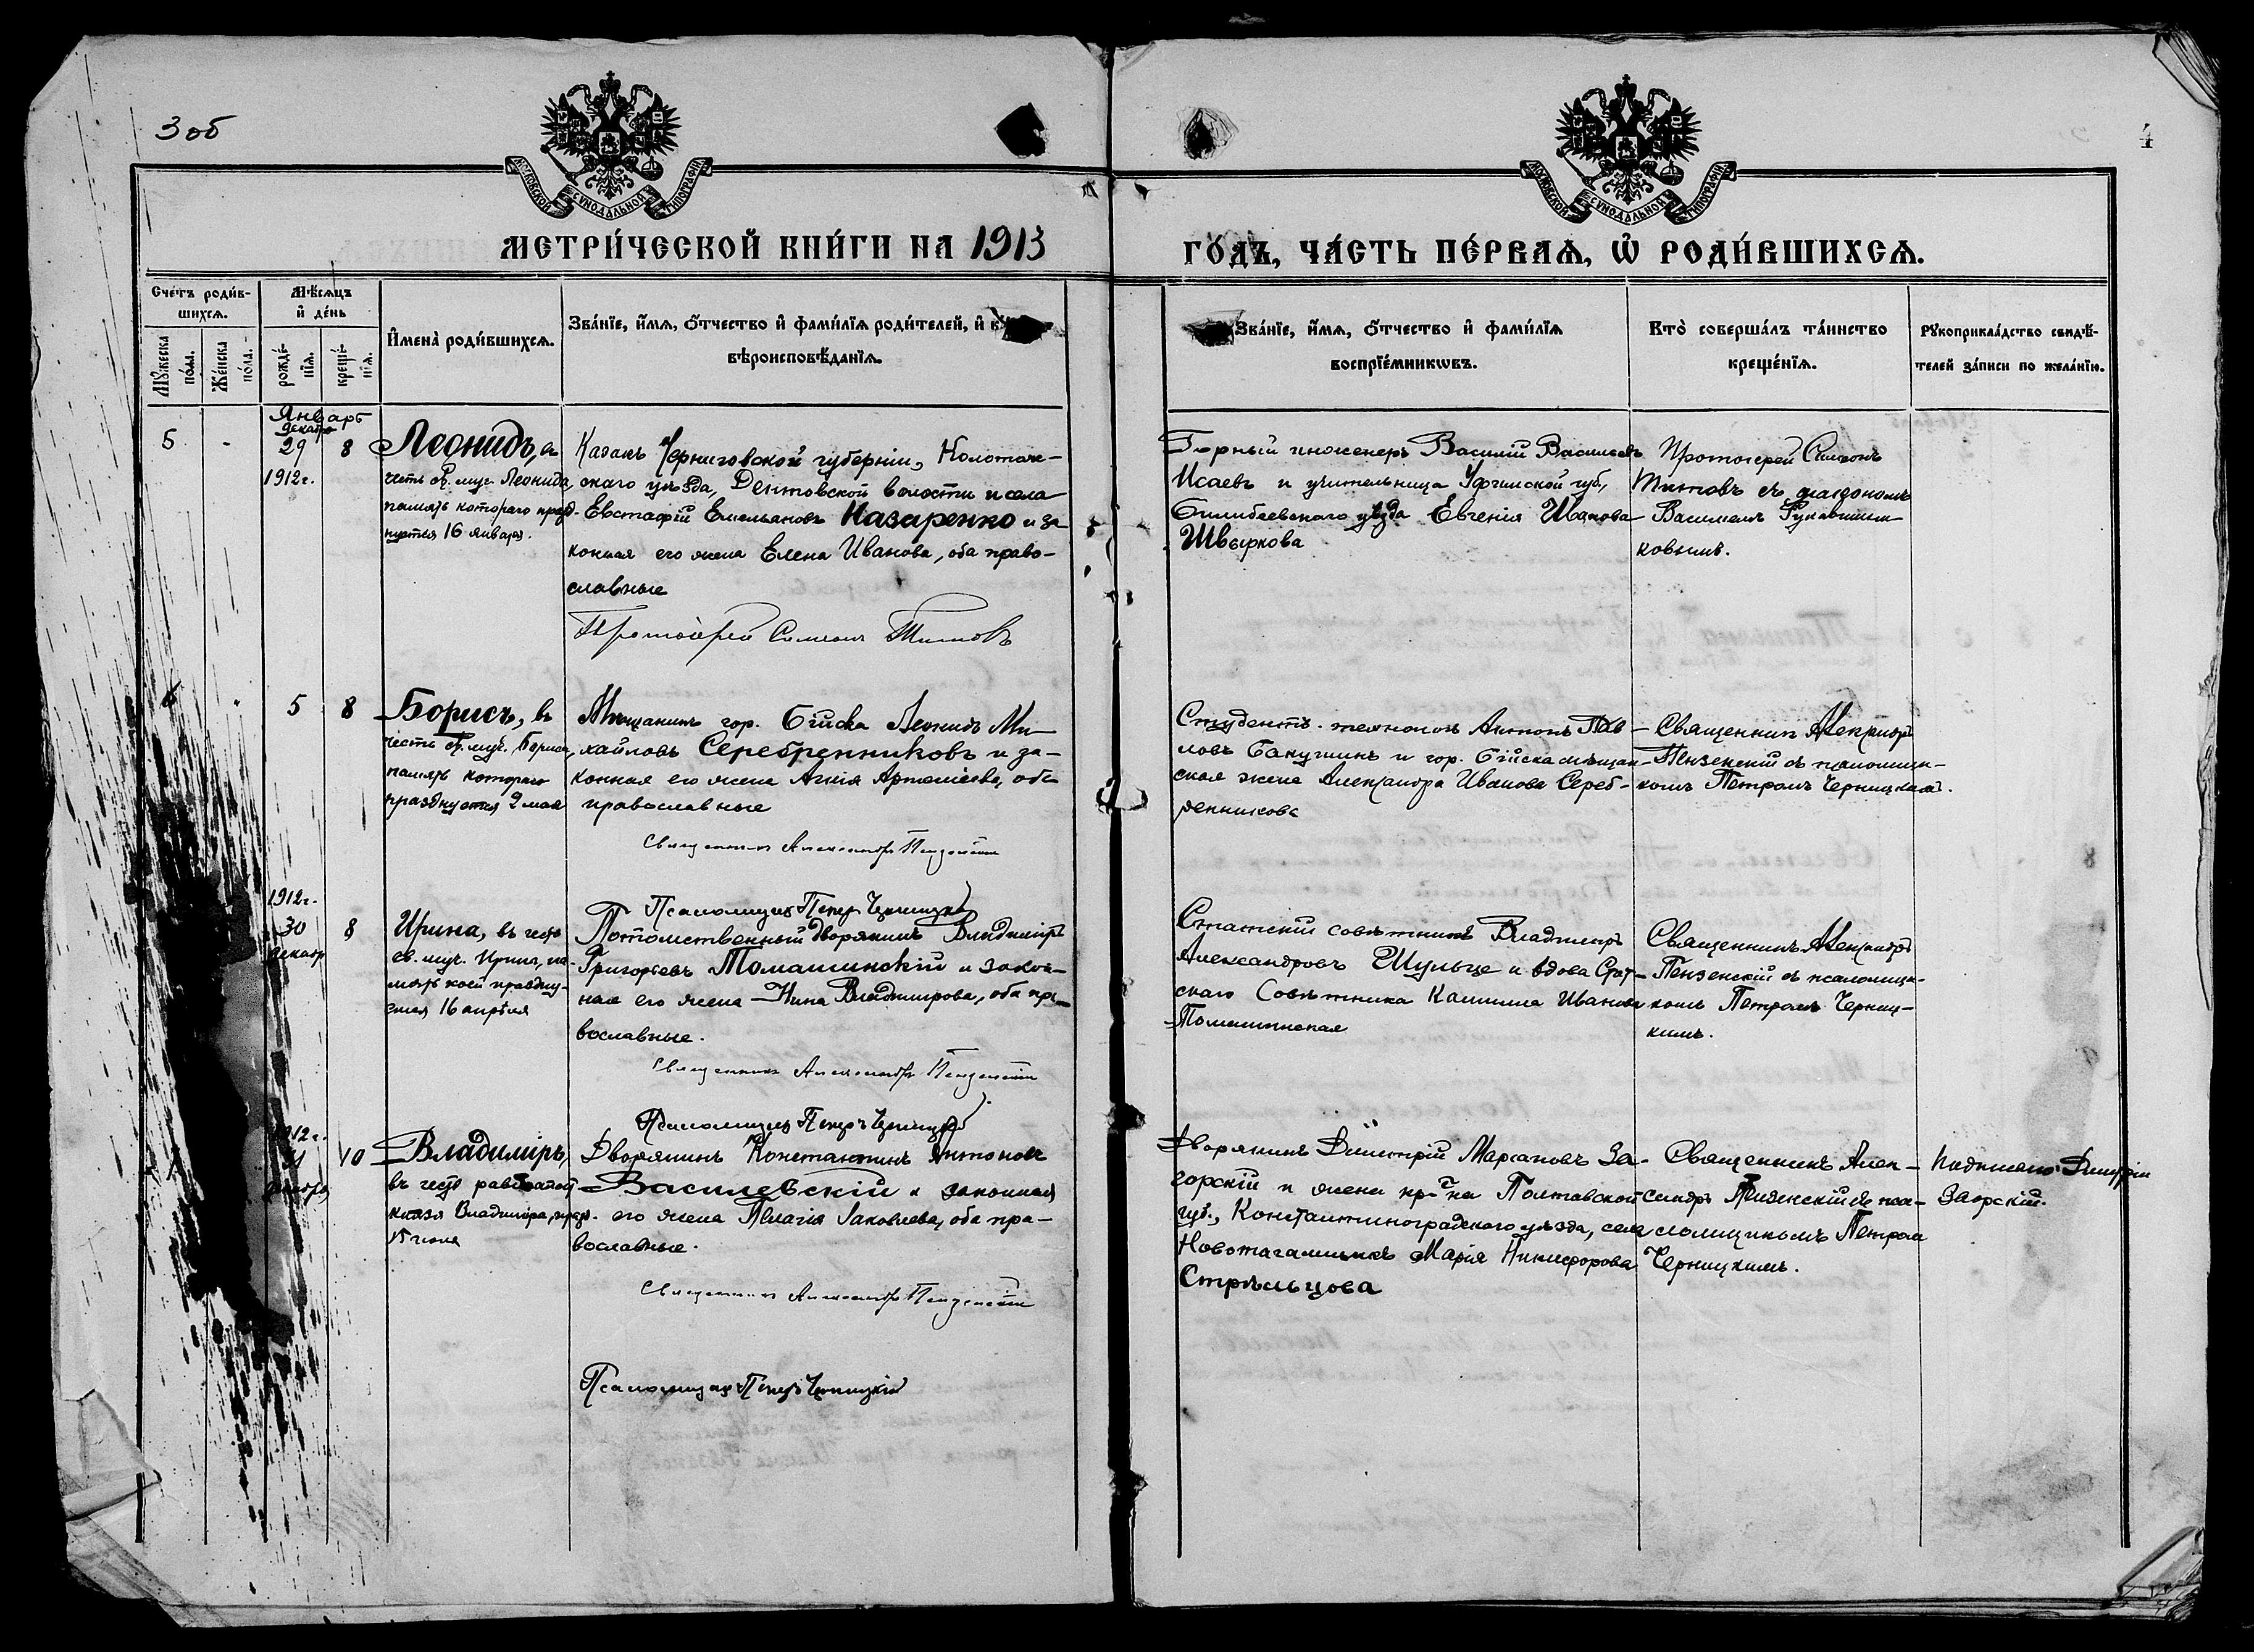 3 об
4
МОСКОВСКОЙ СѴНОДАЛЬНОЙ ТИПОГРАФІИ
МОСКОВСКОЙ СѴНОДАЛЬНОЙ ТИПОГРАФІИ
МЕТРИ́ЧЕСКОЙ КНИ́ГИ НА 1913
ГО́ДЪ, ЧА́СТЬ ПЕ́РВАѦ, Ѽ РОДИ́ВШИХСѦ.
Сче́тъ роди́в-
шихсѧ.
Мꙋ́жеска
по́ла.
Же́нска
по́ла.
Мѣ́сѧцъ
и҆ де́нь
рожде́-
нїѧ.
креще́-
нїѧ.
И҆мена̀ роди́вшихсѧ.
Зва́нїе, и҆́мѧ, ѻ҆́тчество и҆ фами́лїѧ роди́телей, и҆
вѣроисповѣ́данїѧ.
Зва́нїе, и҆́мѧ, ѻ҆́тчество и҆ фами́лїѧ
воспрїе́мникѡвъ.
Кто̀ соверша́лъ та́инство
креще́нїѧ.
Рꙋкоприкла́дство свидѣ́-
телей за́писи по жела́нїю.
Январь
декабр
5 - 29 8
1912г.
Леонидъ, въ
честь св. муч. Леонида,
память котораго празд-
нуется 16 января.
Казакъ Черниговской губерніи, Конотоп-
скаго уѣзда, Дептовской волости и села
Евстафій Емельяновъ Назаренко и за
конная его жена Елена Иванова, оба право-
славные
Протоіерей Симеонъ Титовъ
Горный инженеръ Василій Васильевъ
Исаевъ и учительница Уфимской губ.,
Билибеевскаго уѣзда Евгенія Иванова
Швыркова
Протоіерей Симеонъ
Титовъ съ діакономъ
Василіемъ Рукавишни
ковымъ.
6 5 8
Борисъ, въ
честь св. муч. Бориса,
память котораго
празднуется 2 мая
Мѣщанинъ гор. Бійска Леонидъ Ми-
хайловъ Серебренниковъ и за-
конная его жена Агнія Артемьева, оба
православные
Священникъ Александръ Пензенскій
Псаломщикъ Петръ Черницкій
Студентъ-технологъ Антонъ Пав-
ловъ Бакушинъ и гор. Бійска мѣщан-
ская жена Александра Иванова Сереб-
ренникова
Священникъ Александръ
Пензенскій съ псаломщи-
комъ Петромъ Черницкимъ.
1912г.
30 8
декабр
Ирина, въ честь
св. муч. Ирины, па-
мять коей праздну-
ется 16 апрѣля
Потомственный дворянинъ Владиміръ
Григорьевъ Томашинскій и закон-
ная его жена Нина Владимірова, оба пра-
вославные.
Священникъ Александръ Пензенскій
Псаломщикъ Петръ Черницкій
Статскій совѣтникъ Владиміръ
Александровъ Шульце и вдова Стат-
скаго Совѣтника Камилла Иванова
Томашинская
Священникъ Александръ
Пензенскій съ псаломщи-
комъ Петромъ Черниц-
кимъ.
1912г.
31 10
декабря
Владиміръ,
въ честь равноапост.
князя Владиміра, празд.
15 іюля
Дворянинъ Константинъ Антоновъ
Василевскій и законная
его жена Пелагія Іаковлева, оба пра-
вославные.
Священникъ Александръ Пензенскій
Псаломщикъ Петръ Черницкій
Дворянинъ Димитрій Марсаловъ За-
горскій и жена кр-на Полтавской
губ., Константиноградскаго уѣзда, села
Марія Никифорова
Стрѣльцова
Священникъ Алек-
сандръ Пензенскій съ пса-
ломщикомъ Петромъ
Черницкимъ.
Дмитрій
Загорскій.